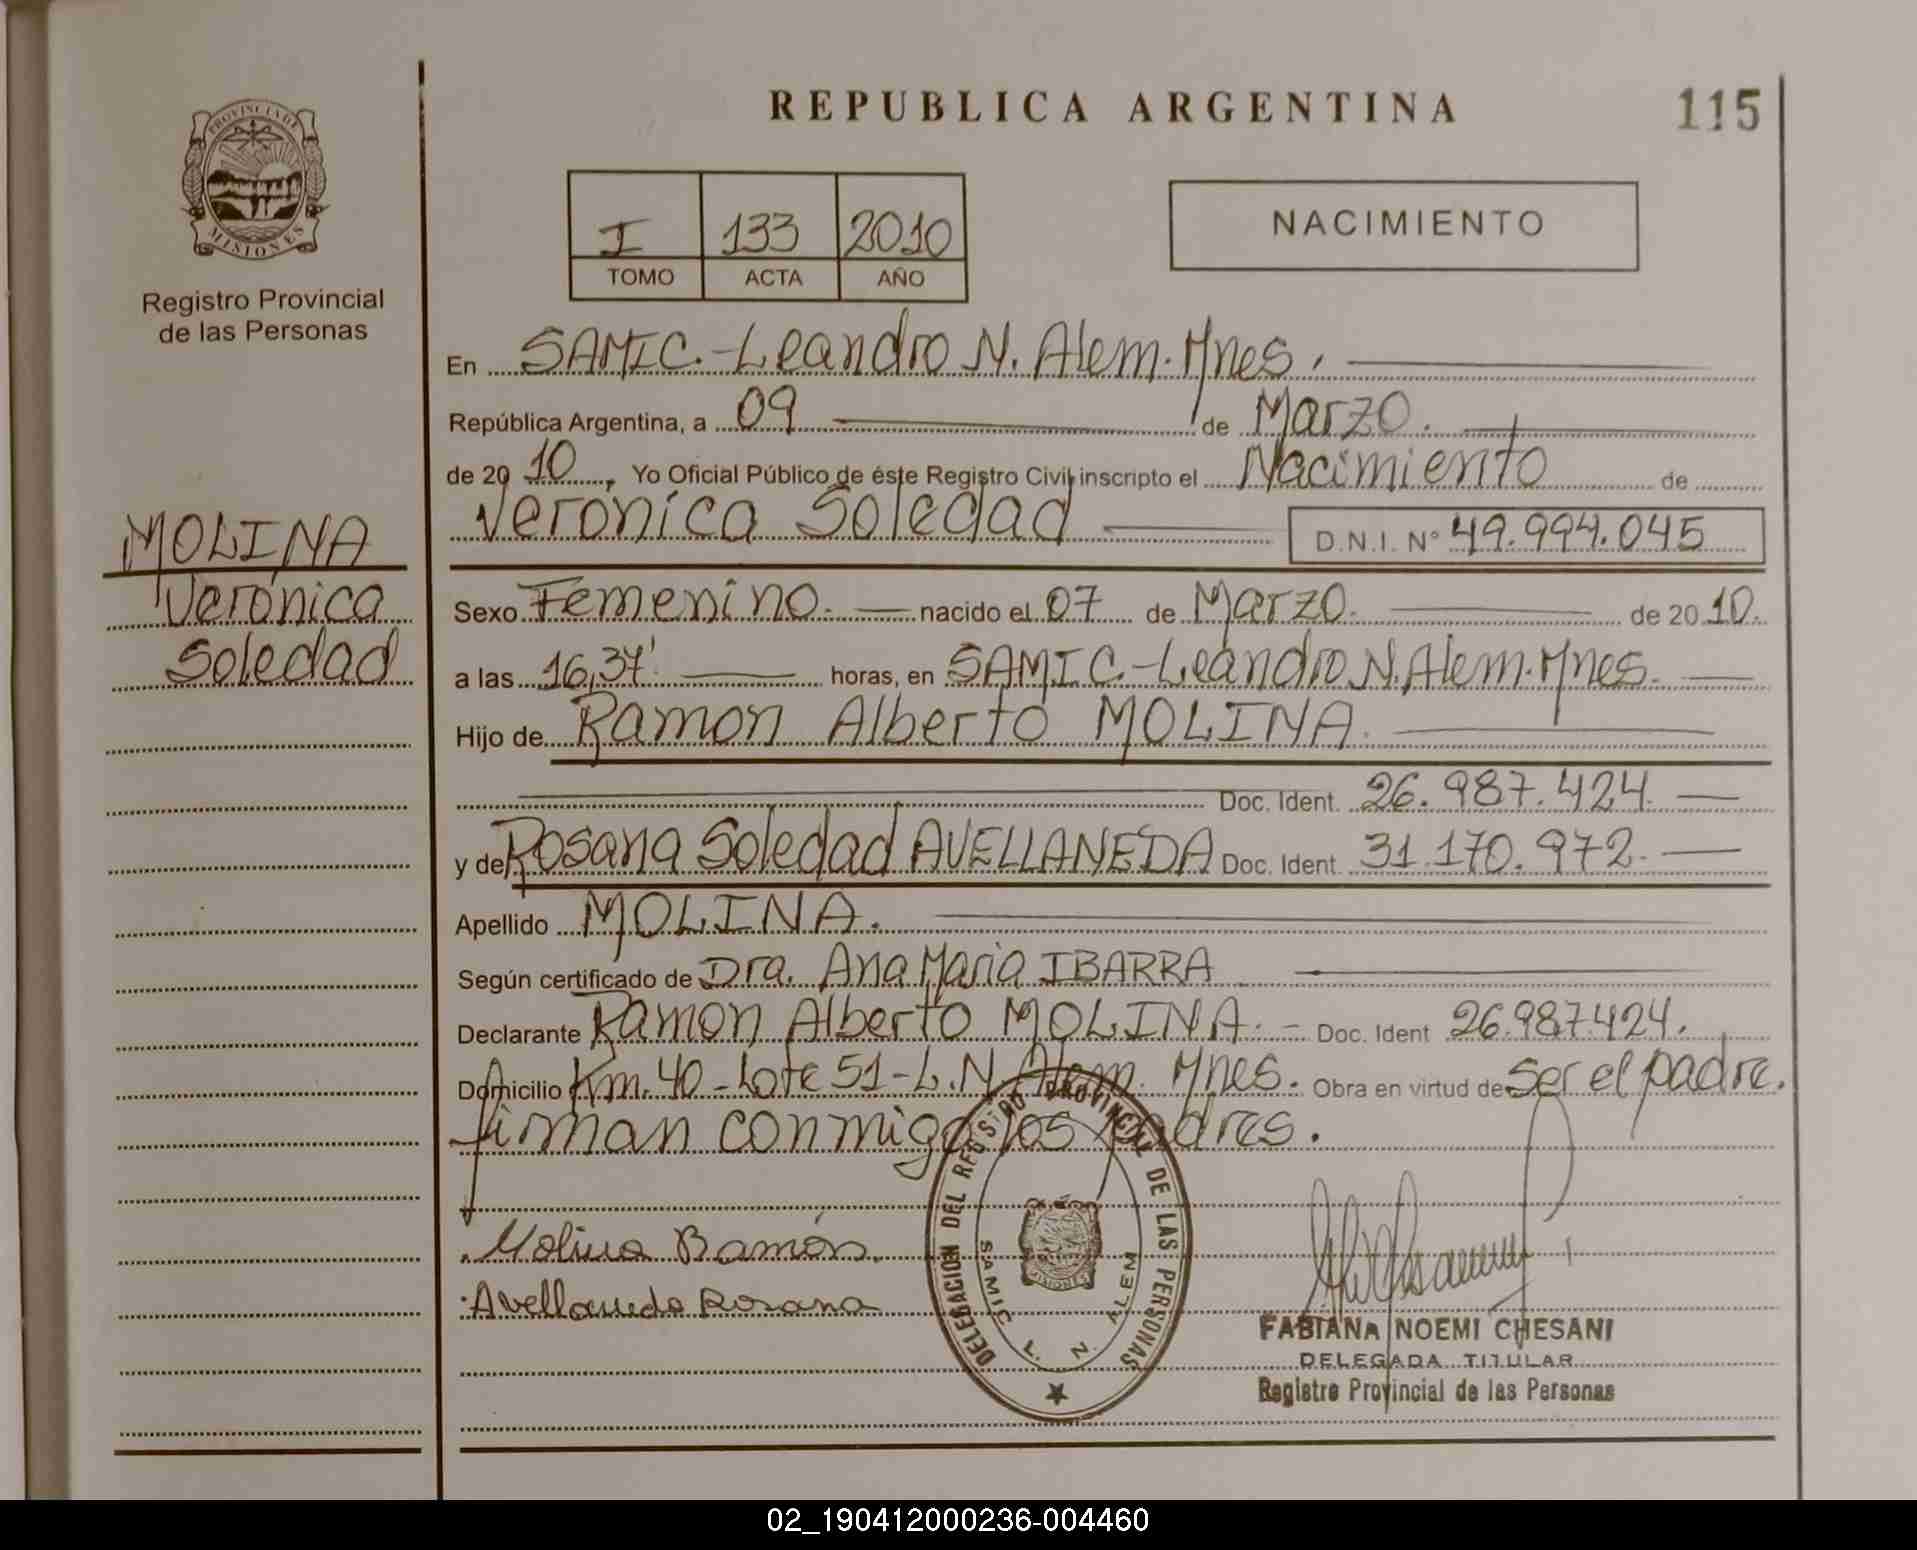 REPUBLICA ARGENTINA
115
PROVINCIA DE MISIONES
Registro Provincial
de las Personas
I 133 2010
TOMO ACTA AÑO
NACIMIENTO
En SAMIC.-Leandro N. Alem. Mnes.
República Argentina, a 09 de Marzo.
de 20 10, Yo Oficial Público de éste Registro Civil inscripto el Nacimiento de
Verónica Soledad D.N.I. Nº 49.994.045
MOLINA
Verónica
Soledad
Sexo Femenino. nacido el 07 de Marzo. de 20 10.
a las 16,37' horas, en SAMIC.-Leandro N. Alem. Mnes.
Hijo de Ramon Alberto MOLINA.
Doc. Ident. 26.987.424.
y de Rosana Soledad AVELLANEDA Doc. Ident. 31.170.972.
Apellido MOLINA.
Según certificado de Dra. Ana Maria IBARRA
Declarante Ramon Alberto MOLINA. Doc. Ident 26.987.424.
Domicilio Km. 40 - Lote 51 - L.N. Alem. Mnes. Obra en virtud de Ser el padre.
firman conmigo los padres.
Molina Ramón.
Avellaneda Rosana
DELEGACION DEL REGISTRO PROVINCIAL DE LAS PERSONAS
SAMIC L. N. ALEM
MISIONES
FABIANA NOEMI CHESANI
DELEGADA TITULAR
Registro Provincial de las Personas
02_190412000236-004460